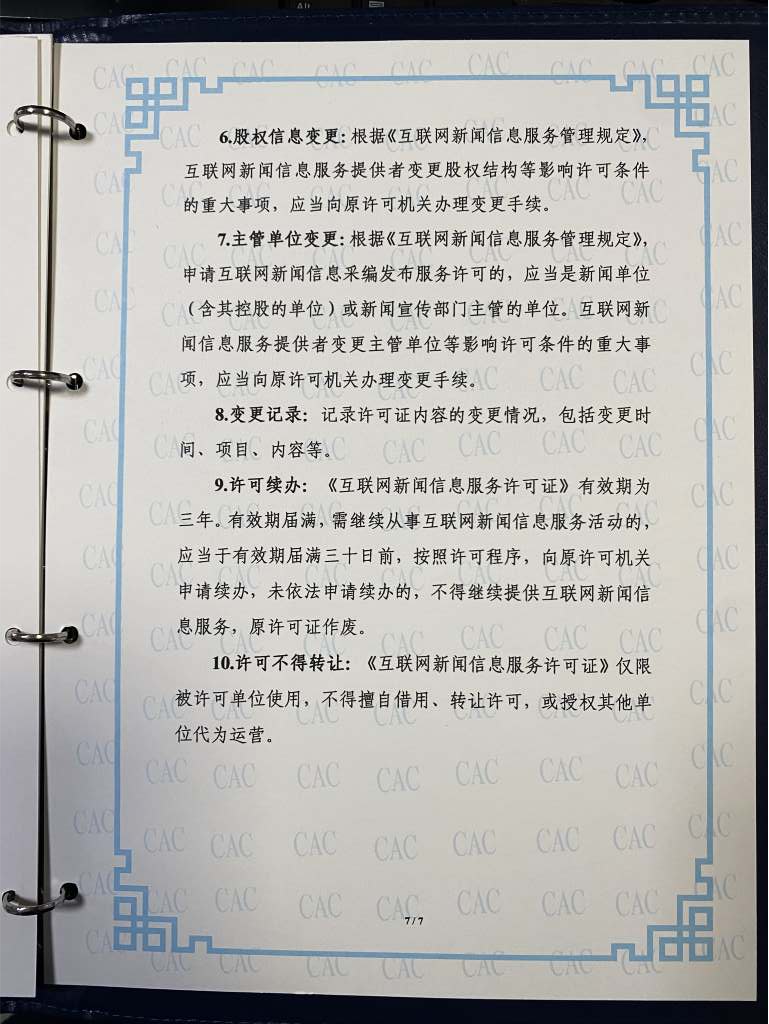 6.股权信息变更：根据《互联网新闻信息服务管理规定》，
互联网新闻信息服务提供者变更股权结构等影响许可条件
的重大事项，应当向原许可机关办理变更手续。
7.主管单位变更：根据《互联网新闻信息服务管理规定》，
申请互联网新闻信息采编发布服务许可的，应当是新闻单位
（含其控股的单位）或新闻宣传部门主管的单位。互联网新
闻信息服务提供者变更主管单位等影响许可条件的重大事
项，应当向原许可机关办理变更手续。
8.变更记录：记录许可证内容的变更情况，包括变更时
间、项目、内容等。
9.许可续办：《互联网新闻信息服务许可证》有效期为
三年。有效期届满，需继续从事互联网新闻信息服务活动的，
应当于有效期届满三十日前，按照许可程序，向原许可机关
申请续办，未依法申请续办的，不得继续提供互联网新闻信
息服务，原许可证作废。
10.许可不得转让：《互联网新闻信息服务许可证》仅限
被许可单位使用，不得擅自借用、转让许可，或授权其他单
位代为运营。
7/7
CAC